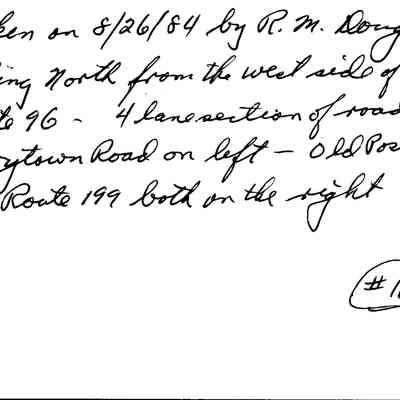 ken on 8/26/84 by R. M. Doug
ing North from the west side of
te 96 - 4 lane section of road
rytown Road on left - Old Pos
Route 199 both on the right
#1